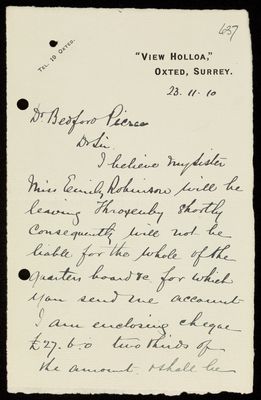 637
TEL. 10 OXTED.
"VIEW HOLLOA,"
OXTED, SURREY.
23. 11. 10
Dr Bedford Pierce
Dr Sir.
I believe my sister
Miss Emily Robinson will be
leaving Throxenby shortly
consequently will not be
liable for the whole of the
quarters board &c for which
you send me account.
I am enclosing cheque
£27. 6. 0 two thirds of
the amount & shall be